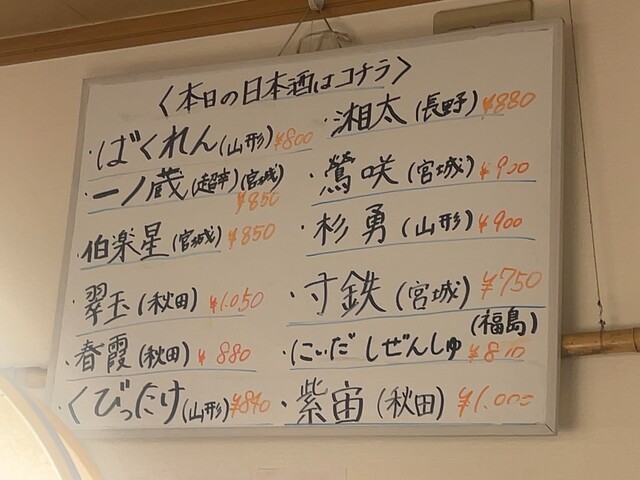 〈本日の日本酒はコチラ〉
・ばくれん(山形)¥800
・一ノ蔵(超辛)(宮城)
¥850
・伯楽星(宮城)¥850
・翠玉(秋田)¥1.050
・春霞(秋田)¥880
・くびったけ(山形)¥840
・湘太(長野)¥880
・鶯咲(宮城)¥900
・杉勇(山形)¥900
・寸鉄(宮城)¥750
(福島)
・にいだしぜんしゅ¥810
・紫宙(秋田)¥1.000